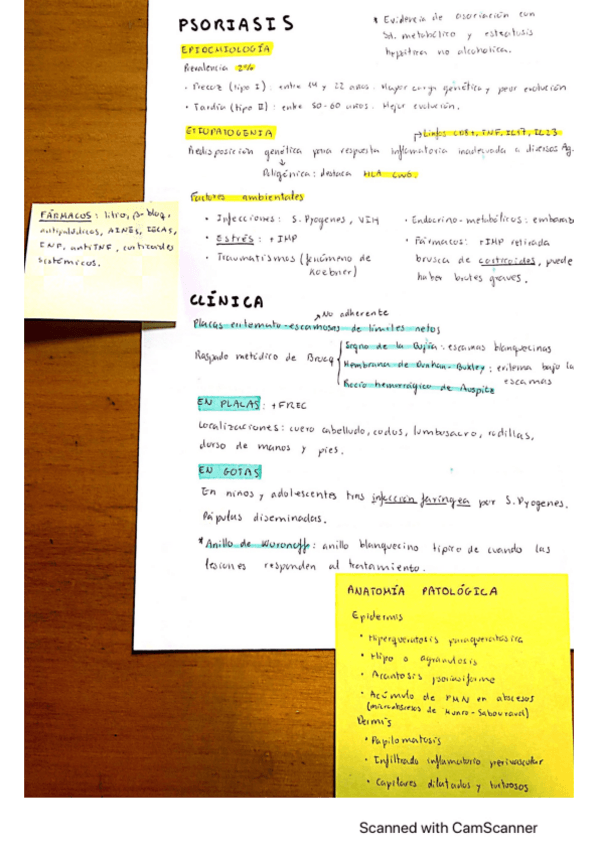 PSORIASIS
* Evidencia de asociación con
Sd. metabólico y esteatosis
hepática no alcohólica.
EPIDEMIOLOGÍA
Prevalencia 2%
• Precoz (tipo I): entre 14 y 22 años. Mayor carga genética y peor evolución
• Tardía (tipo II): entre 50-60 años. Mejor evolución.
ETIOPATOGENIA
→ Linfos CD8+, TNF, IL17, IL23
Predisposición genética para respuesta inflamatoria inadecuada a diversos Ag.
↓
Poligénica: destaca HLA CW6.
Factores ambientales
• Infecciones: S. Pyogenes, VIH
• Estrés: +IMP
• Traumatismos (fenómeno de
Koebner)
• Endocrino-metabólicos: embarazo
• Fármacos: +IMP retirada
brusca de corticoides, puede
haber brotes graves.
FÁRMACOS: litio, β-bloq,
antipalúdicos, AINEs, IECAS,
INF, antiTNF, corticoides
sistémicos.
CLÍNICA
→ No adherente
Placas eritemato-escamosas de límites netos
Raspado metódico de Brocq
Signo de la Bujía: escamas blanquecinas
Membrana de Duncan-Bukley: eritema bajo la
escamas
Rocío hemorrágico de Auspitz
EN PLACAS: +FREC
Localizaciones: cuero cabelludo, codos, lumbosacro, rodillas,
dorso de manos y pies.
EN GOTAS
En niños y adolescentes tras infección faríngea por S. Pyogenes.
Pápulas diseminadas.
* Anillo de Woronoff: anillo blanquecino típico de cuando las
lesiones responden al tratamiento.
ANATOMÍA PATOLÓGICA
Epidermis
• Hiperqueratosis paraqueratósica
• Hipo o agranulosis
• Acantosis psoriasiforme
• Acúmulo de PMN en abscesos
(microabscesos de Munro-Sabouraud)
Dermis
• Papilomatosis
• Infiltrado inflamatorio perivascular
• Capilares dilatados y tortuosos
Scanned with CamScanner